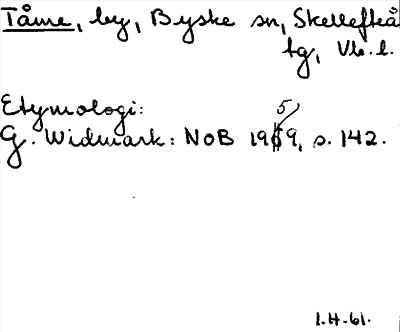 Tåme, by, Byske sn, Skellefteå
tg, Vb. l.
Etymologi:
G. Widmark: NoB 1959, s. 142.
I.H-61.